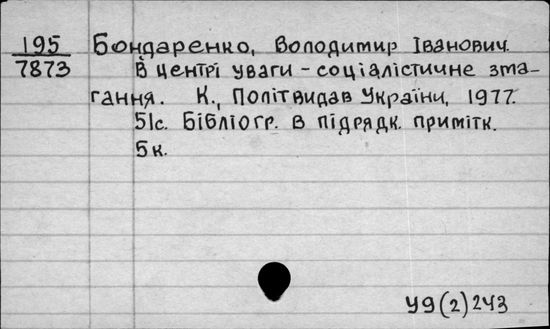 195 Бондаренко, Володимир Іванович.
7873 В центрі уваги - соціалістичне зма-
гання. К., Політвидав України, 1977.
51с. Бібліогр. в підрядк. примітк.
5к.
У9(2)243